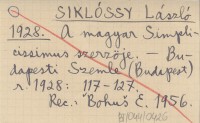 SIKLÓSSY László
1928. A magyar Simpli-
cissimus szerzője. — Bu-
dapesti Szemle (Budapest)
r. 1928: 117-127.
Rec.: Bohuš E. 1956.